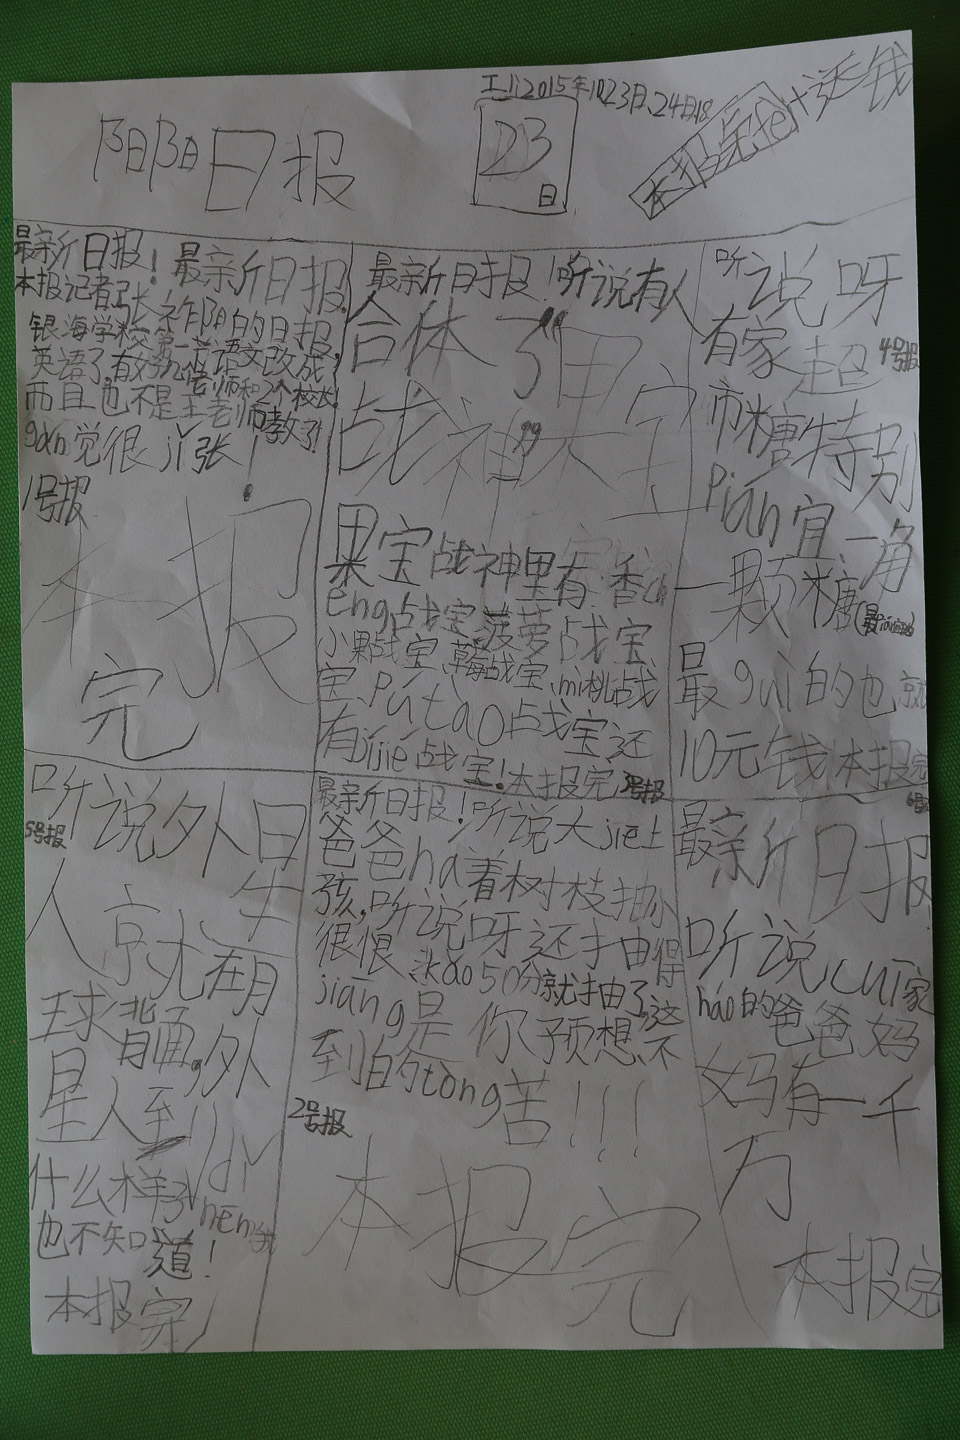 阳阳日报
2015年10 23日、24日
23
日
本报
送钱
最新日报！最新日报，
本报记者张祚阳的日报，
银海学校第一节语文改成
英语了有好几位老师和2个校长
而且也不是王老师教了！
gǎn觉很jǐ张！
1号报
本报
完
最新日报！听说有人
合体了“果宝
战神”
果宝战神里有：香ch
eng战宝、菠萝战宝
小果战宝、草莓战宝、mi桃战
宝、pútao战宝还
有jújie战宝！本报完
3号报
听说呀
有家超
4号报
市糖特别
pián宜、一角
一颗糖
最guì的也就
10元钱本报完
听说外星
5号报
人就在月
球背面，外
星人到底
什么样子
nEn我
也不知道！
本报完
最新日报！听说大jie上
爸爸ná着树枝抽小
孩，听说呀还抽得
很恨、kǎo50分就抽了、这
jiāng是你预想不
到的tòng苦！！！
2号报
本报完
6号
最新日报！
听说 家
háo的爸爸妈
妈有一千
万
本报完